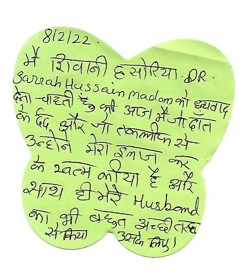 8/2/22.
मैं शिवानी हसोरिया DR.
Sarrah Hussain madam को धन्यवाद
देना चाहती हूँ की आज मैं जो दाँत
के दर्द और जो तकलीफ से
उन्होने मेरा इलाज कर
के खत्म कीया है और
साथ ही मेरे Husband
का भी बहुत अच्छी तरह
से किया उसके लिए।